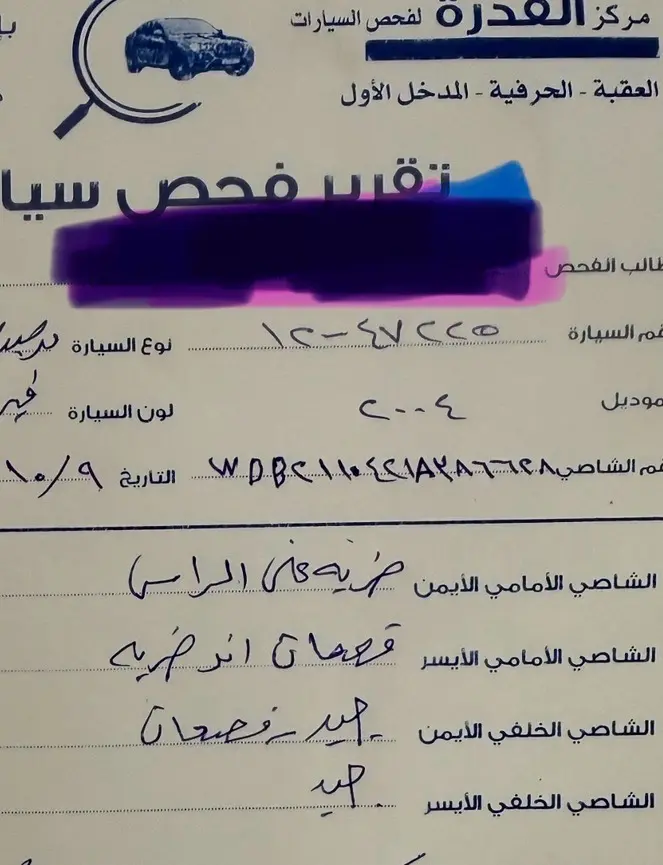 مركز القدرة لفحص السيارات
العقبة - الحرفية - المدخل الأول
تقرير فحص سيا
طالب الفحص
قم السيارة ١٢-٤٧٢٢٥ نوع السيارة
موديل ٢٠٠٤ لون السيارة
قم الشاصي WDB٢١١٠٤٢١A٣٨٦٦٢٨ التاريخ ١٠/٩
الشاصي الأمامي الأيمن ضربه على الراس
الشاصي الأمامي الأيسر قصعات اثر ضربه
الشاصي الخلفي الأيمن جيد - قصعات
الشاصي الخلفي الأيسر جيد